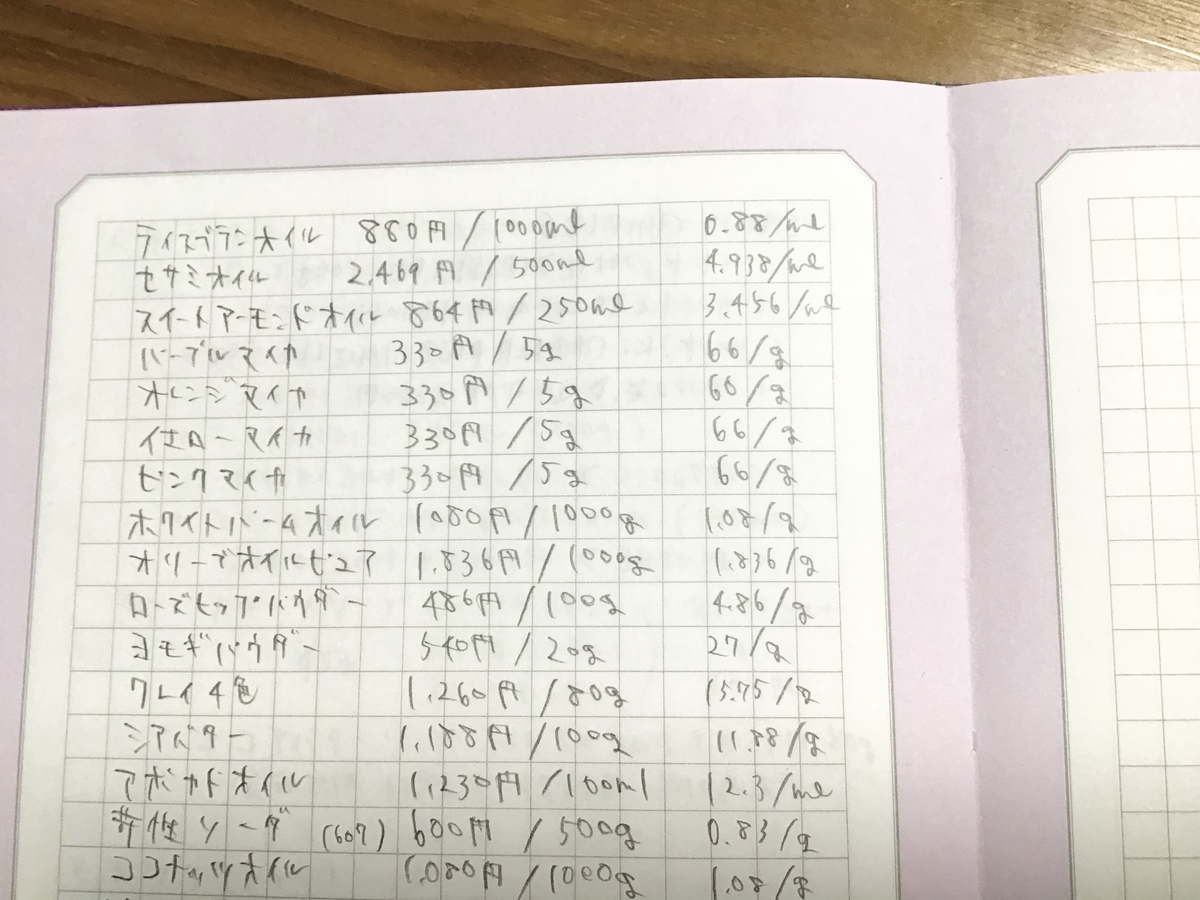 ライスブランオイル 880円/1000ml 0.88/ml
セサミオイル 2.469円/500ml 4.938/ml
スイートアーモンドオイル 864円/250ml 3.456/ml
パープルマイカ 330円/5g 66/g
オレンジマイカ 330円/5g 66/g
イエローマイカ 330円/5g 66/g
ピンクマイカ 330円/5g 66/g
ホワイトパームオイル 1080円/1000g 1.08/g
オリーブオイルピュア 1.836円/1000g 1.836/g
ローズヒップパウダー 486円/100g 4.86/g
ヨモギパウダー 540円/20g 27/g
クレイ4色 1.260円/80g 15.75/g
シアバター 1.188円/100g 11.88/g
アボカドオイル 1.230円/100ml 12.3/ml
苛性ソーダ (607) 600円/500g 0.83/g
ココナッツオイル 1.080円/1000g 1.08/g